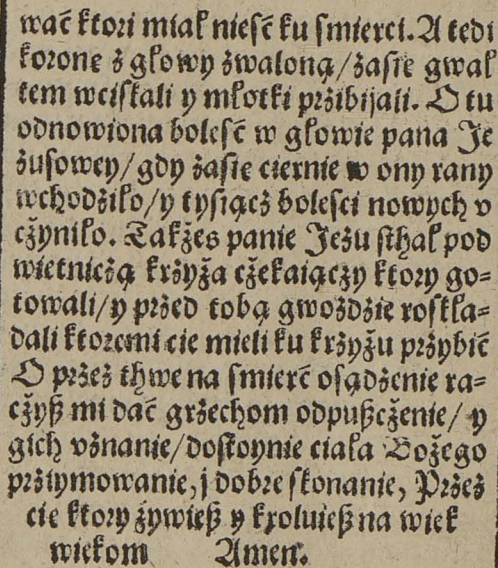 wać ktori miał nieść ku smierci. A tedi
korone z głowy zwaloną/zasie gwał
tem wciskali y młotki przibijali. O tu
odnowiona boleść w głowie pana Je
zusowey/gdy zasie ciernie w ony rany
wchodziło/y tysiącz bolesci nowych v
cżyniło. Takżes panie Jezu sthał pod
wietniczą krzyża cżekaiączy ktory go⸗
towali/y przed tobą gwozdzie roskła⸗
dali ktoremi cie mieli ku krzyżu przybić
O przez thwe na smierć osądzenie ra⸗
cżyß mi dać grzechom odpußcżenie/ y
gich vznanie/dostoynie ciała Bożego
prziymowanie, j dobre skonanie, Przez
cie ktory żywieß y kroluieß na wiek
wiekom Amen.